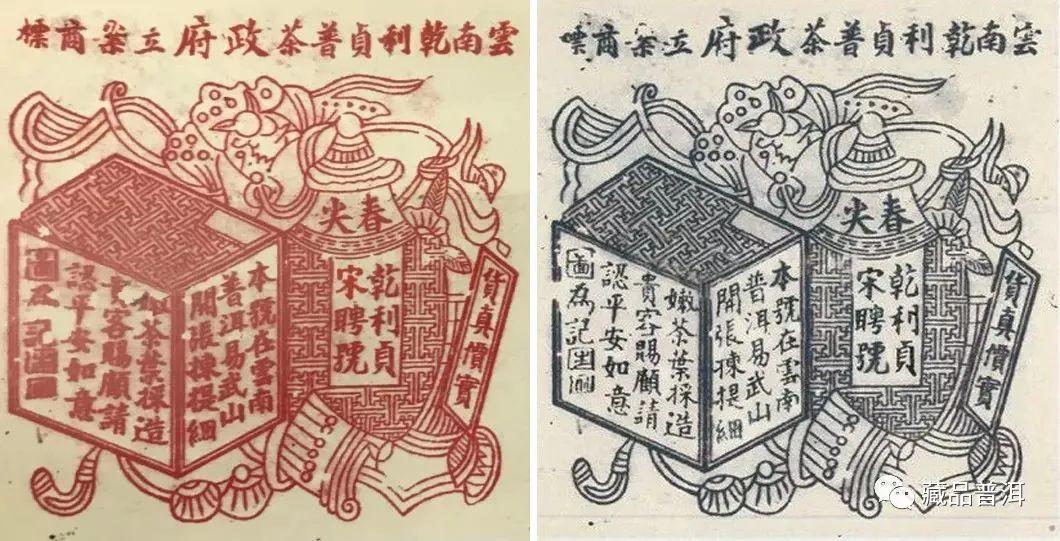 雲南乾利貞普茶政府立案商標
春尖
乾利貞
宋聘號
貨真價實
本號在雲南
普洱易武山
開張揀提細
茶葉採造
客賜顧請
認平安如意
圖為記
雲南乾利貞普茶政府立案商標
春尖
乾利貞
宋聘號
貨真價實
本號在雲南
普洱易武山
開張揀提細
嫩茶葉採造
貴客賜顧請
認平安如意
圖為記
藏品普洱